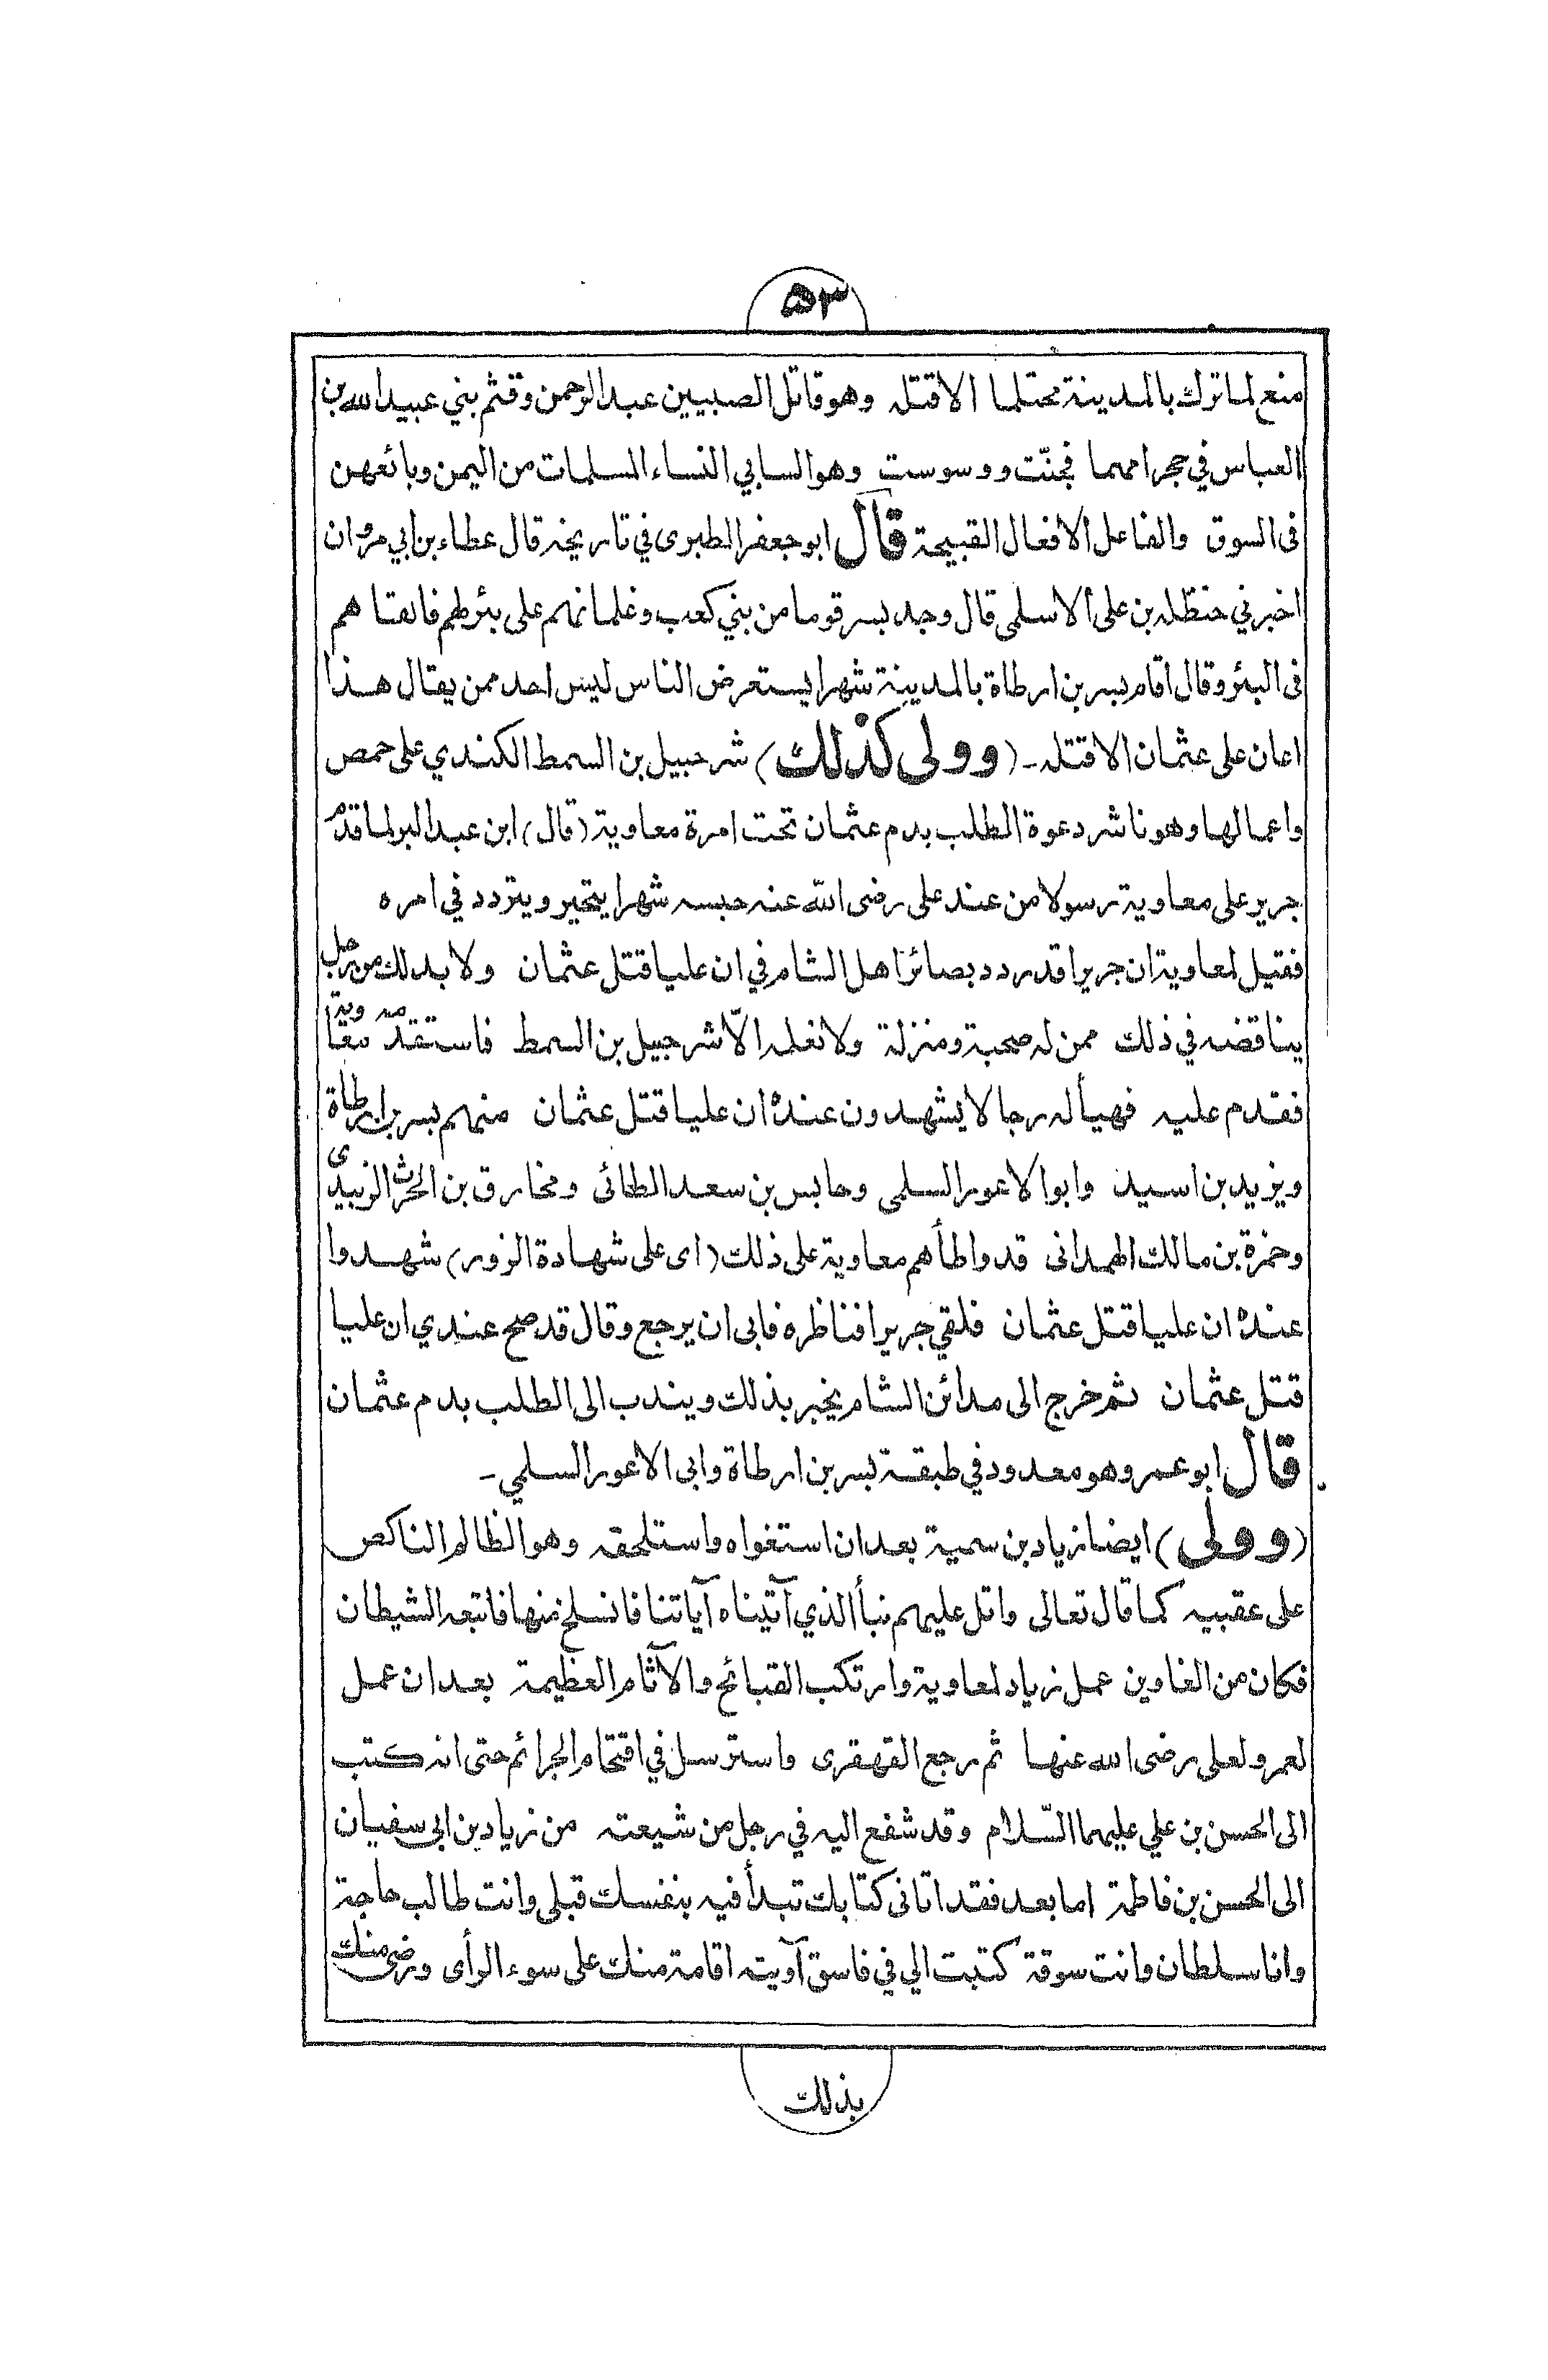 ٥٣
منع لما ترك بالمدينة محتلما الا قتله وهو قاتل الصبيين عبد الرحمن وقثم بني عبيد الله بن
العباس في حجر امهما فجنّت ووسوست وهو السابي النساء المسلمات من اليمن وبائعهن
فى السوق والفاعل الافعال القبيحة قال ابو جعفر الطبرى في تاريخه قال عطاء بن ابي مروان
اخبرني حنظله بن على الاسلمى قال وجد بسر قوما من بني كعب وغلمانهم على بئر لهم فالقتا هم
فى البئر وقال اقام بسر بن ارطاة بالمدينة شهرا يستعرض الناس ليس احد ممن يقال هذا
اعان على عثمان الا قتله - (وولى كذلك) شرحبيل بن السمط الكندي على حمص
واعمالها وهو ناشر دعوة الطلب بدم عثمان تحت امرة معاوية (قال) ابن عبد البر لما قدم
جرير على معاوية رسولا من عند على رضى الله عنه حبسه شهرا يتحير ويتردد في امره
فقيل لمعاوية ان جريرا قد ردد بصائر اهل الشام في ان عليا قتل عثمان ولا بد لك من رجل
يناقضه في ذلك ممن له صحبة ومنزلة ولا نعلمه الّا شرحبيل بن السمط فاستقدمه معاوية
فقدم عليه فهيأ له رجالا يشهدون عنده ان عليا قتل عثمان منهم بسر بن ارطاة
ويزيد بن اسيد وابو الاعور السلمى وحابس بن سعد الطائى ومخارق بن الحرث الزبيدى
وحمزة بن مالك الهمدانى قد واطأهم معاوية على ذلك (اى على شهادة الزور) شهدوا
عنده ان عليا قتل عثمان فلقي جريرا فناظره فابى ان يرجع وقال قد صح عندي ان عليا
قتل عثمان ثم خرج الى مدائن الشام يخبر بذلك ويندب الى الطلب بدم عثمان
قال ابو عمر وهو معدود في طبقة بسر بن ارطاة وابى الاعور السلمي -
(وولى) ايضا زياد بن سمية بعد ان استغواه واستلحقه وهو الظالم الناكص
على عقبيه كما قال تعالى واتل عليهم نبأ الذي آتيناه آياتنا فانسلخ منها فاتبعه الشيطان
فكان من الغاوين عمل زياد لمعاوية وارتكب القبائح والآثام العظيمة بعد ان عمل
لعمر ولعلى رضى الله عنها ثم رجع القهقرى واسترسل في اقتحام الجرائم حتى انه كتب
الى الحسن بن علي عليهما السّلام وقد شفع اليه في رجل من شيعته من زياد بن ابى سفيان
الى الحسن بن فاطمة اما بعد فقد اتانى كتابك تبدأ فيه بنفسك قبلى وانت طالب حاجة
وانا سلطان وانت سوقة كتبت الي في فاسق آويته اقامة منك على سوء الرأى ورضى منك
بذلك